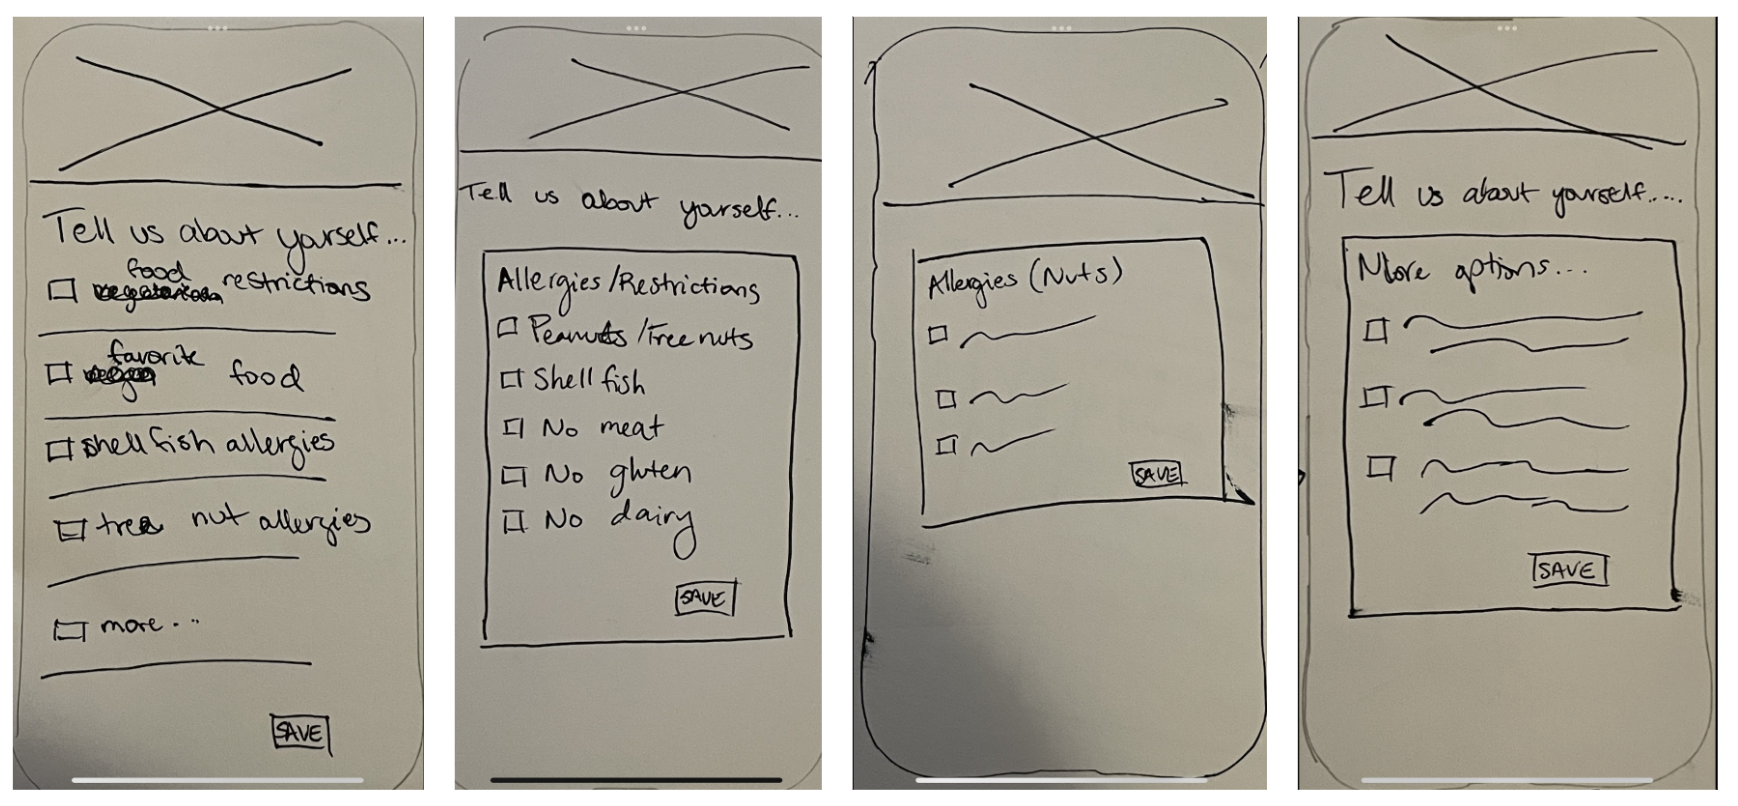 Tell us about yourself...
food restrictions
favorite food
shell fish allergies
tree nut allergies
more...
SAVE
Tell us about yourself...
Allergies/Restrictions
Peanuts/Tree nuts
Shell fish
No meat
No gluten
No dairy
SAVE
Allergies (Nuts)
SAVE
Tell us about yourself.....
More options...
SAVE